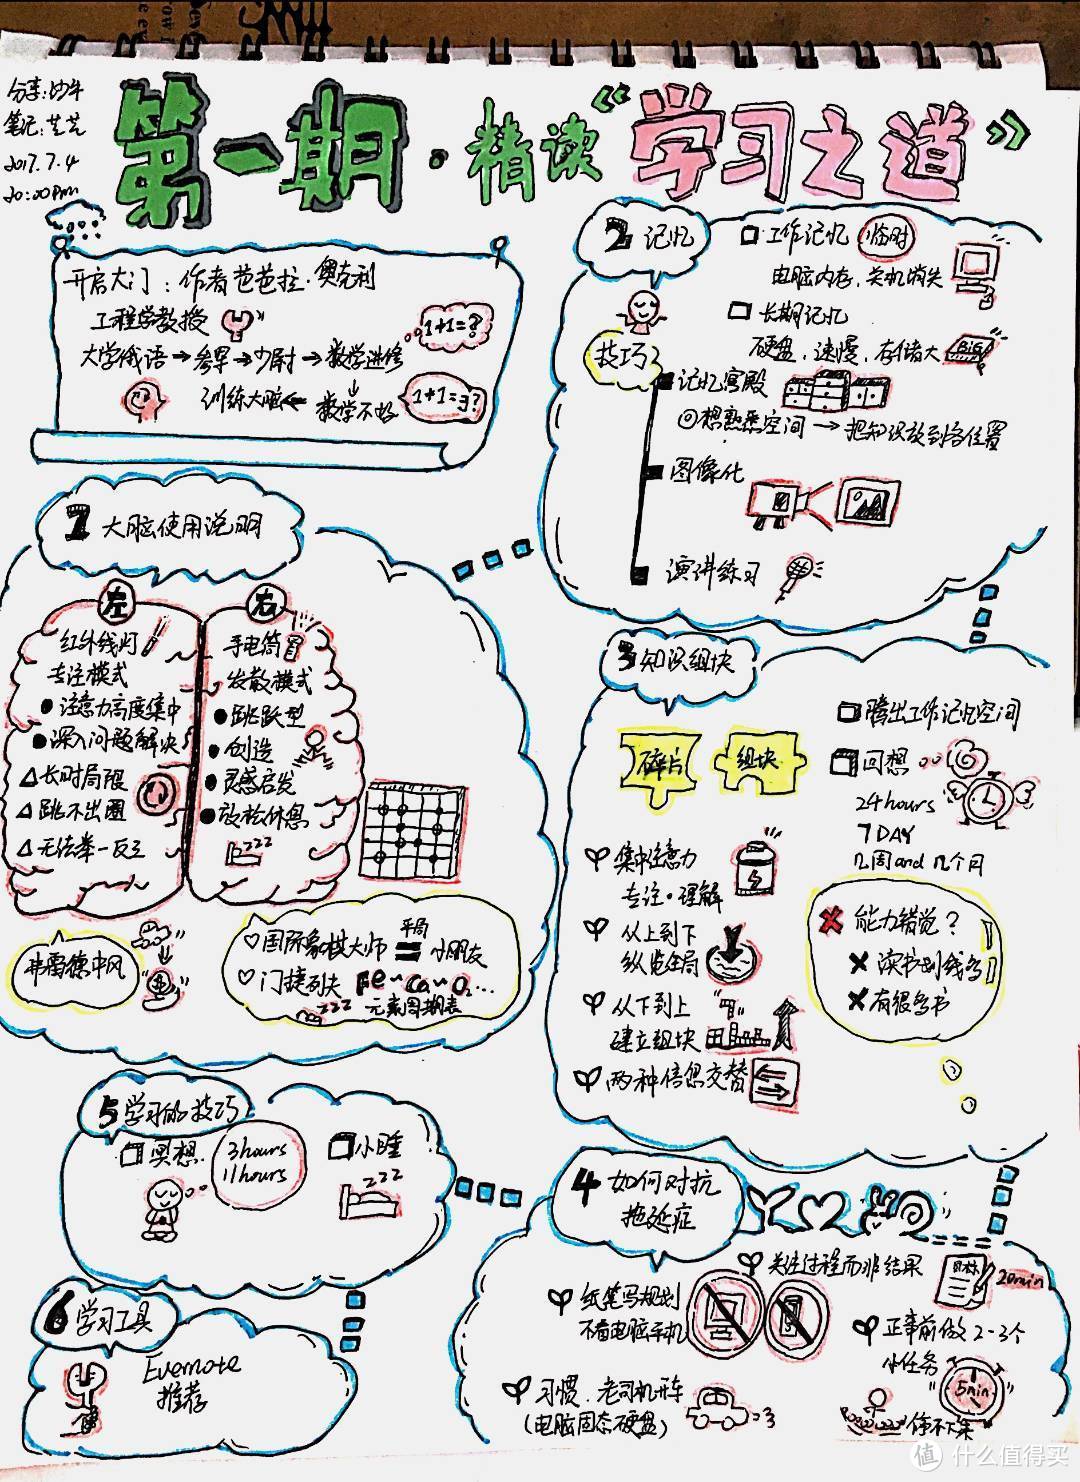 分享:沙牛
笔记:芝芝
2017.7.4
20:00pm
第一期·精读“学习之道”
开启大门:作者芭芭拉·奥克利
工程学教授
1+1=?
大学俄语→参军→少尉→数学进修
训练大脑←数学不好
1+1=3?
1 大脑使用说明
左
红外线灯
专注模式
注意力高度集中
深入问题解决
△长时局限
△跳不出圈
△无法举一反三
右
手电筒
发散模式
跳跃型
创造
灵感启发
放松休息
zzz
弗雷德中风
♡国际象棋大师 平局 = 小朋友
♡门捷列夫 Fe~Ca~O₂...
zzz 元素周期表
2 记忆
工作记忆 临时
电脑内存,关机消失
长期记忆
硬盘,速慢,存储大 BIG
技巧
记忆宫殿
◎想熟悉空间→把知识放到各位置
图像化
演讲练习
3 知识组块
碎片
组块
腾出工作记忆空间
回想
24hours
7DAY
几周and几个月
集中注意力
专注。理解
从上到下
纵览全局
从下到上
建立组块
两种信息交替
✗能力错觉?
✗读书划线多
✗有很多书
4 如何对抗
拖延症
关注过程而非结果
20min
纸笔写规划
不看电脑手机
正事前做2-3个
小任务
“5min”
停不下来
习惯.老司机开车
(电脑固态硬盘)
5 学习的技巧
冥想.
3hours
11hours
小睡
zzz
6 学习工具
Evernote
推荐
值 什么值得买